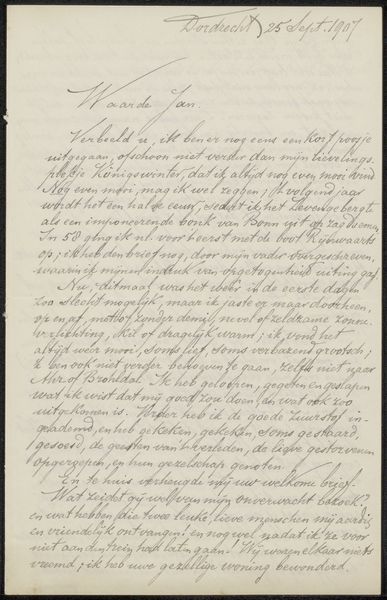 Dordrecht, 25 Sept. 1907
Waarde Jan.
Verbeeld u, ik ben er nog eens een kort poosje
uitgegaan, ofschoon niet verder dan mijn lievelings-
plekje Königswinter, dat ik altijd nog even mooi vind
Nog even mooi, mag ik wel zeggen; 't volgend jaar
wordt het een halve eeuw, sedert ik het Zevengebergte
als een imponeerende bonk van Bonn uit op zag doemen.
In 58 ging ik nl. voor 't eerst met de boot Rijnwaarts
op; ik heb den brief nog, door mijn vader overgeschreven,
waarin ik mijnen indruk van opgetogenheid uiting gaf
Nu, ditmaal was het weêr in de eerste dagen
zoo slecht mogelijk, maar ik jaste er maar doorheen,
op en af, met of zonder demi, nevel of zeldzame zonne-
verlichting, kil of dragelijk warm; ik vond het
altijd weêr mooi, soms lief, soms verbazend grootsch;
'k ben ook niet verder behoeven te gaan, zelfs niet naar
Ahr of Brohldal. Ik heb geloopen, gegeten en geslapen
wat ik wist dat mij goed zou doen, en wat ook zoo
uitgekomen is. Verder heb ik de goede zuurstof in-
geademd, en heb gekeken, gekeken, soms gestaard,
gesoesd, de geesten van 't verleden, de lieve gestorvenen
opgeroepen, en hun gezelschap genoten.
En te huis verheugde mij uw welkome brief.
Wat zeidet gij wel van mijn onverwacht bezoek?
en wat hebben die twee leuke, lieve menschen mij aardig
en vriendelijk ontvangen! en nog wel nadat ik ze voor
niet aan den trein had laten gaan! Wij waren elkaar niets
vreemd; ik heb uwe gezellige woning bewonderd.